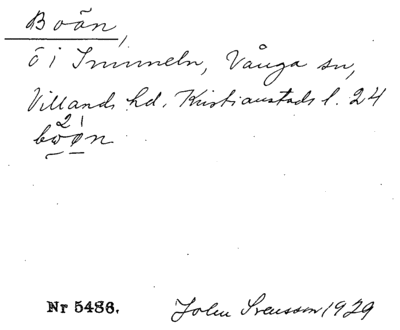 Boän,
ö i Immeln, Vånga sn,
Villands hd. Kristianstads l. 24
2 1
boøn
Nr 5486. John Svensson 1929